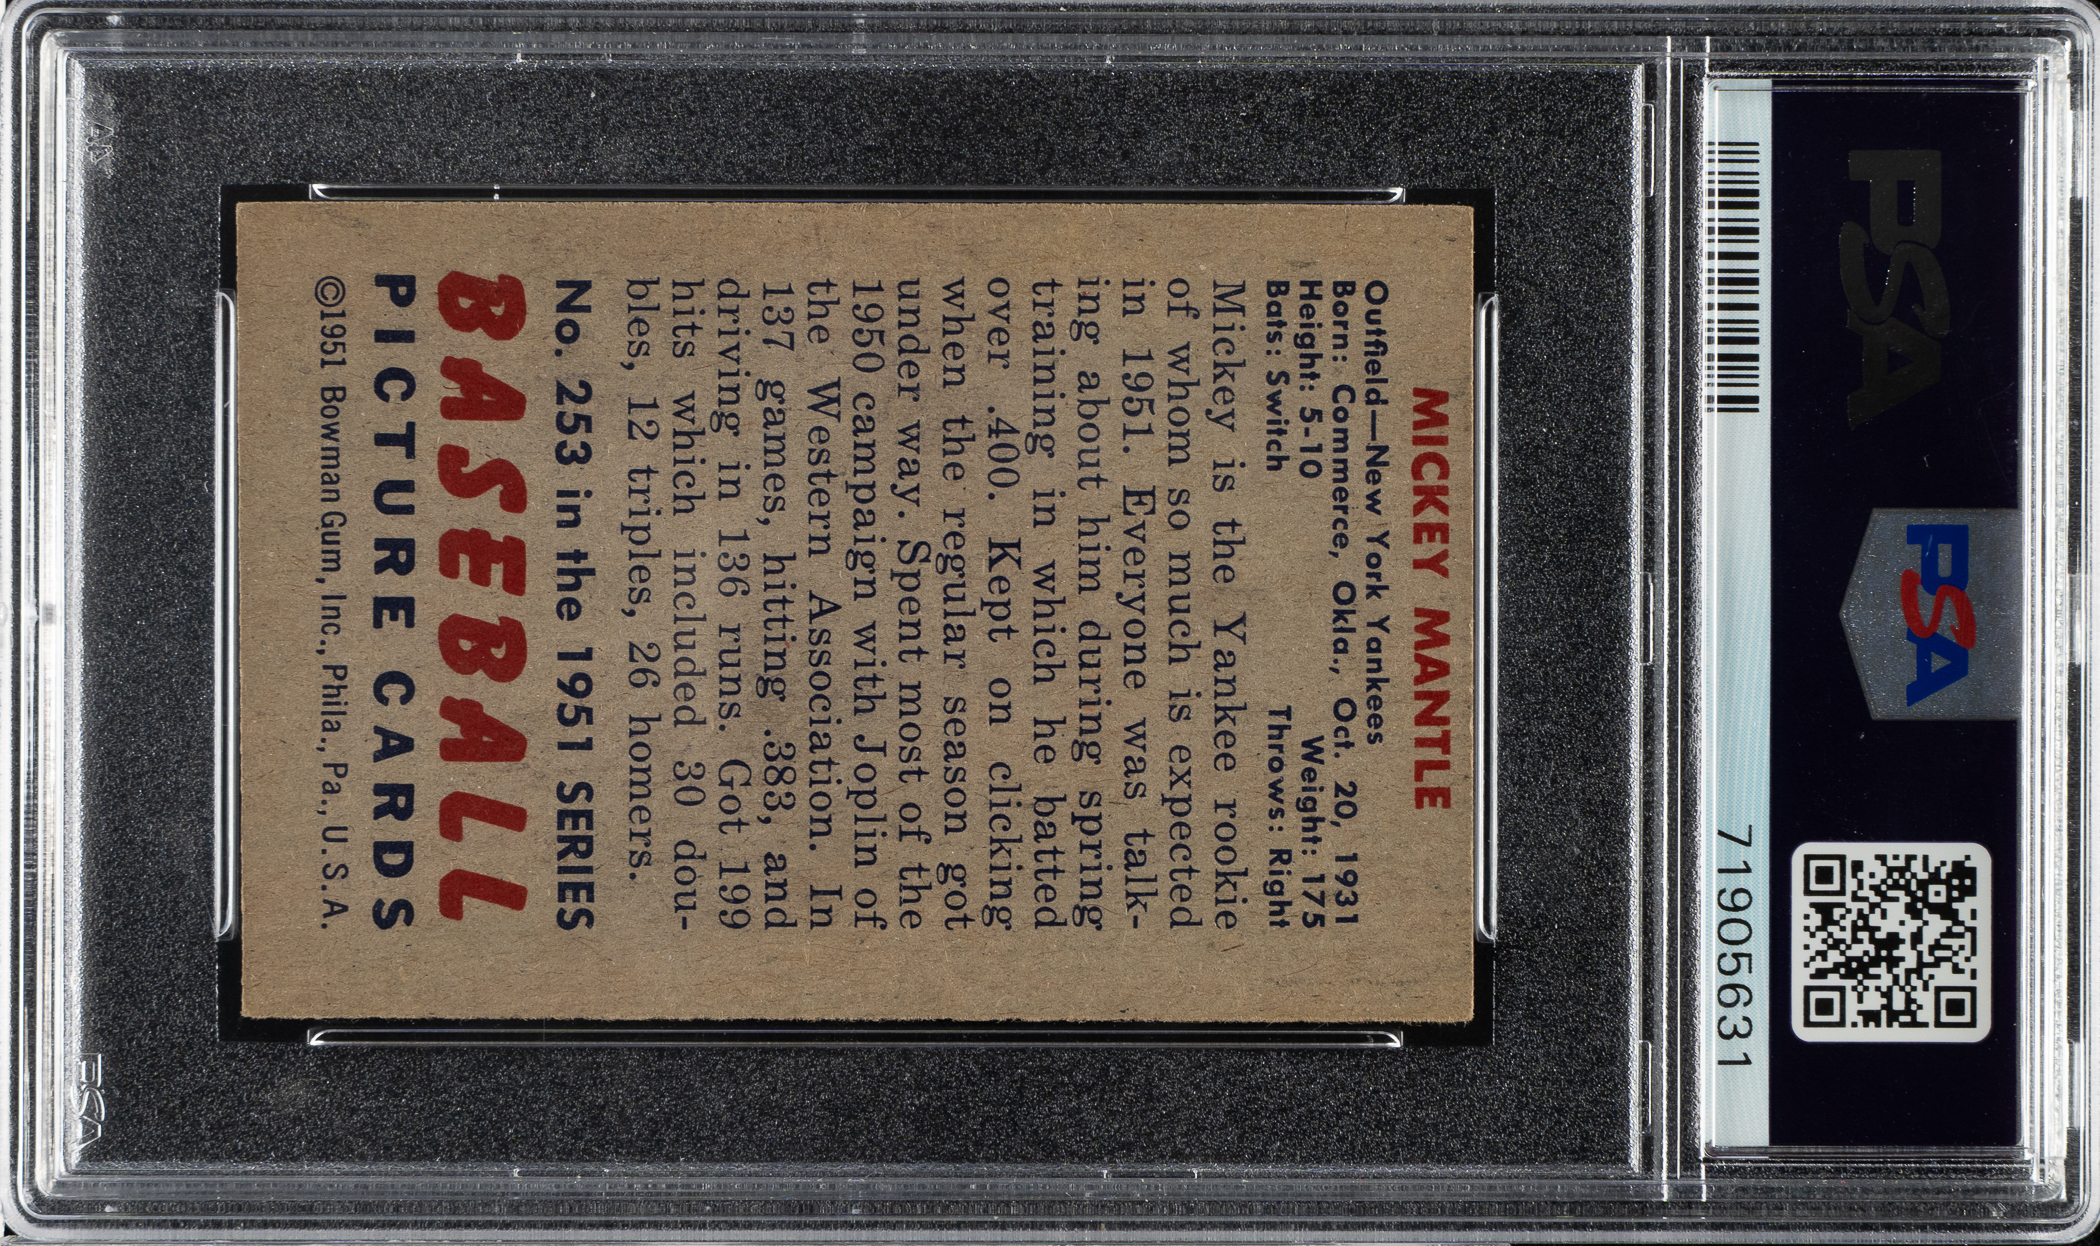 PSA
PSA
71905631
MICKEY MANTLE
Outfield—New York Yankees
Born: Commerce, Okla., Oct. 20, 1931
Height: 5-10 Weight: 175
Bats: Switch Throws: Right
Mickey is the Yankee rookie
of whom so much is expected
in 1951. Everyone was talk-
ing about him during spring
training in which he batted
over .400. Kept on clicking
when the regular season got
under way. Spent most of the
1950 campaign with Joplin of
the Western Association. In
137 games, hitting .383, and
driving in 136 runs. Got 199
hits which included 30 dou-
bles, 12 triples, 26 homers.
No. 253 in the 1951 SERIES
BASEBALL
PICTURE CARDS
©1951 Bowman Gum, Inc., Phila., Pa., U.S.A.
PSA